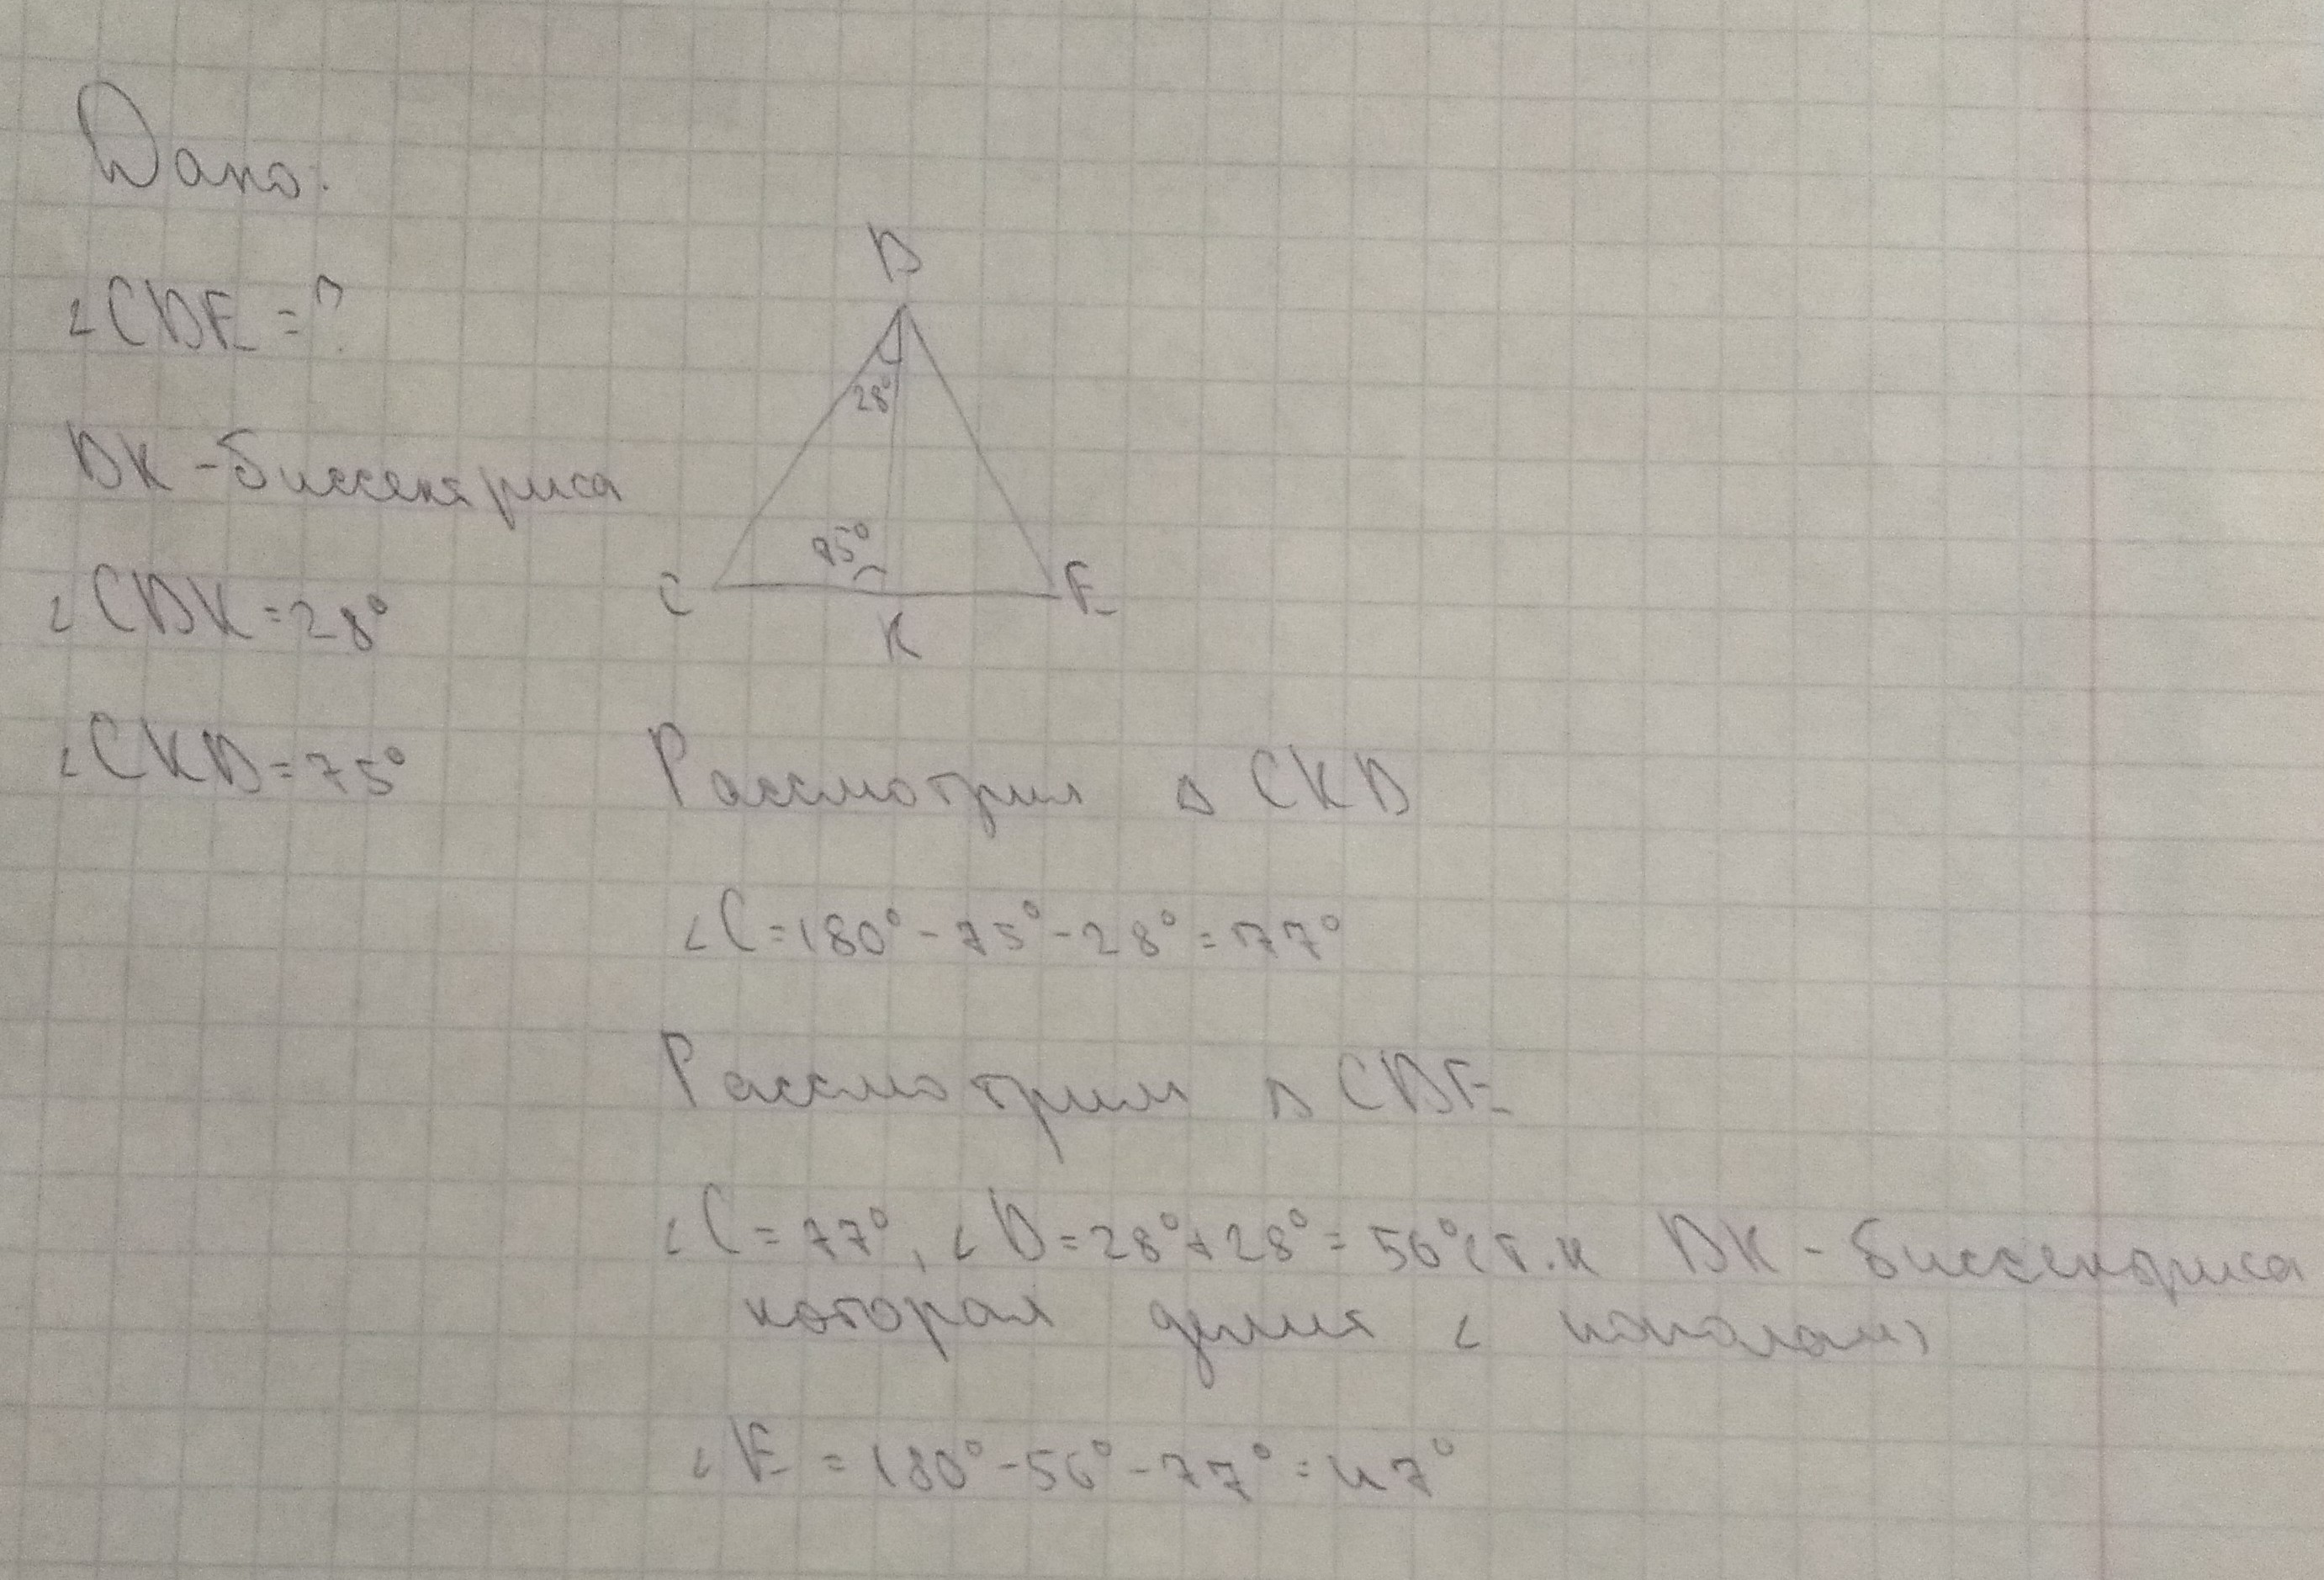 Дано:
∠CDE = ?
DK - биссектриса
∠CDK = 28°
∠CKD = 75°
D
28°
75°
C
K
E
Рассмотрим △ CKD
∠C = 180° - 75° - 28° = 77°
Рассмотрим △ CDE
∠C = 77°, ∠D = 28° + 28° = 56° (т.к DK - биссектриса
которая делит ∠ пополам)
∠E = 180° - 56° - 77° = 47°